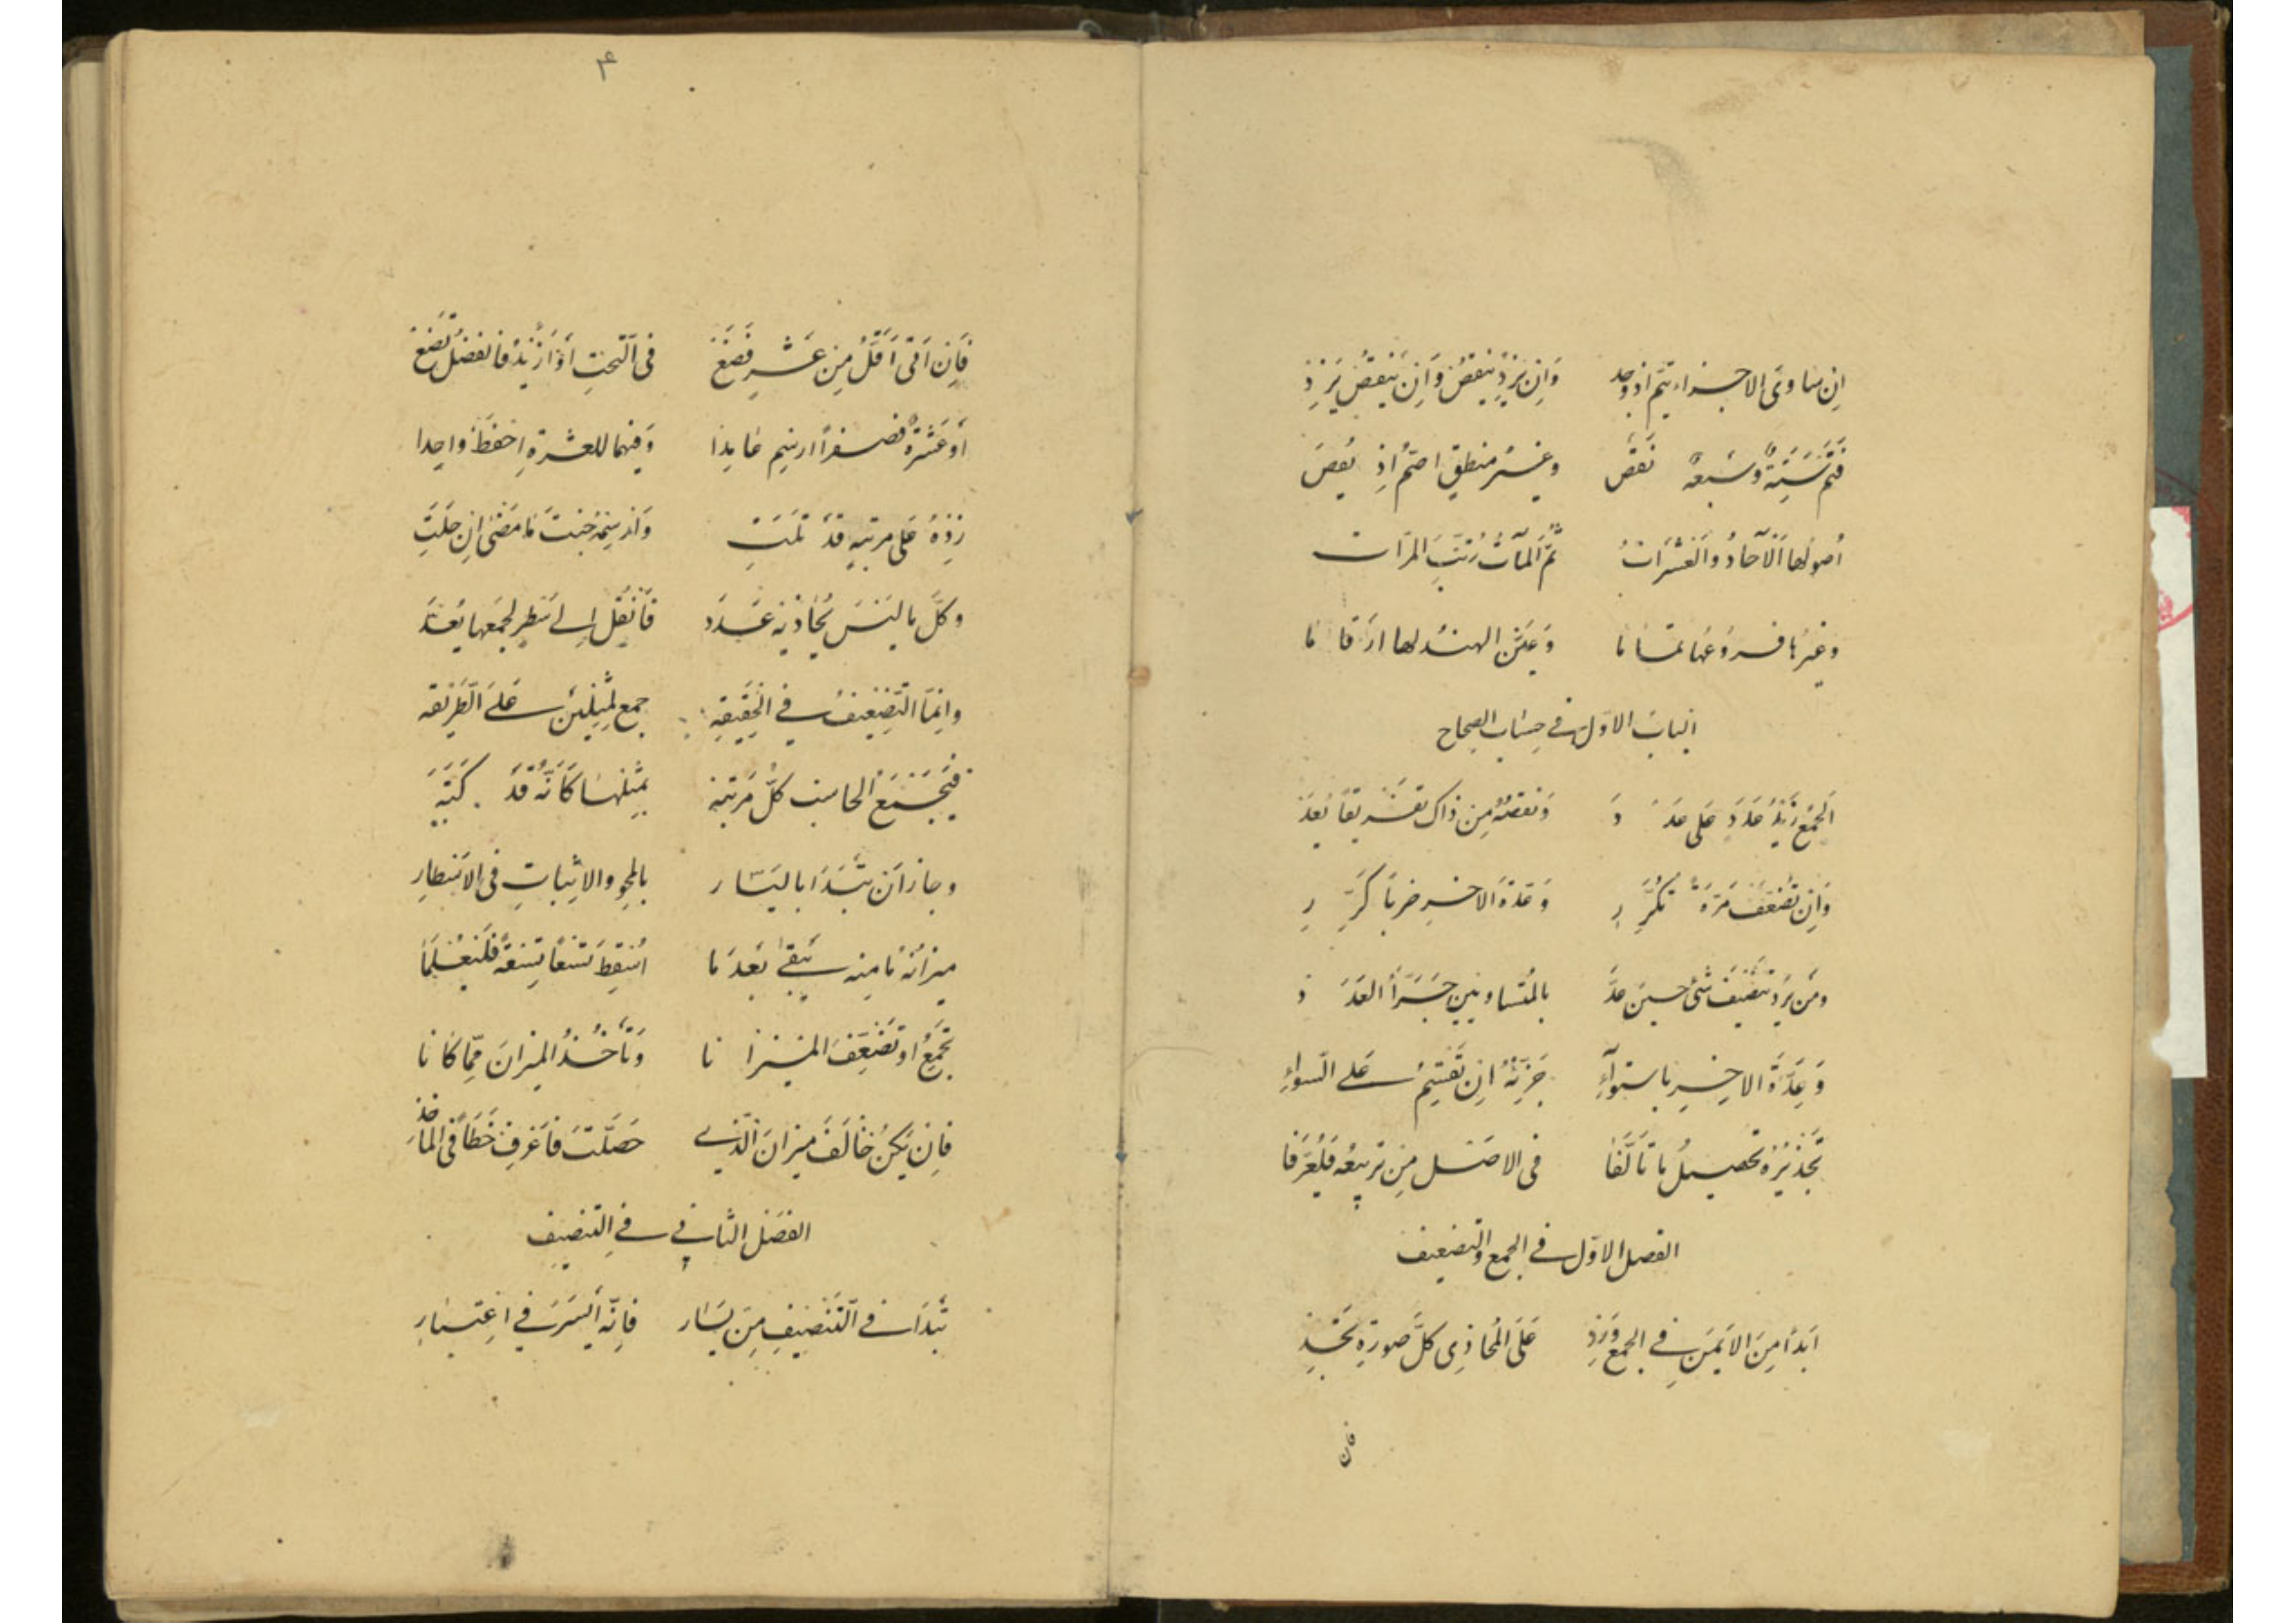 اِن ساوى الاجزاء يتم اذ وجد وَاِن يَزِد يَنقُص وَاِن يَنقُص يَزِد
فَتَمّ سِتّةٌ وسَبعةٌ نَقَص وغيرُ منطِقٍ اصمّ اِذ
اُصولها اَلآحادُ والعَشَراتُ ثمّ المآتُ رُتّبَ المرّات
وغيرُها فروعُها تماما وَعيّنَ الهند لها ارقاما
الباب الاوّل في حِساب الصحاح
اَلجمعُ زَيدُ عَدَدٍ على عَدَد وَنقصُهُ مِن ذاك تفريقًا يُعَد
وَاِن تُضَعِّف مَرّةً تكرّر وَعِدّةَ الاخير ضربا كرّر
ومَن يُرِد تنصيفَ شئ حين عدّ بالمتساويين جَزّأَ العَدَد
وَعِدّةَ الاخير باستواءِ جزّيتُهُ اِن تقسيمٌ على السّواءِ
تجذيرُه تحصيلُ ما تألّفا في الاصل مِن تربيعه فليُعرَفا
الفصل الاوّل في الجمع والتضعيف
اَبدأ مِنَ الايمَنِ في الجمع وَزِدِ عَلَى المُحاذِى كلَّ صورةٍ تَجِدِ
فان
۴
فَاِن اَتى اَقلُّ مِن عَشرٍ فَضَع في التحتِ اَوْ اَزيدُ فالفضلُ تَضَع
اَو عَشرةٌ فصفرًا ارسِم عايدا وَفيهما للعشرةِ احفَظ واحِدا
زِدهُ على مرتبةٍ قد تَلَت وَارسِمهُ جنبَ ما مَضى اِن خَلَتِ
وكلّ ما ليسَ يُحاذيه عَدَد فانقُل اِلى سَطرٍ لجمعِها يُعَدّ
واِنّما التّضعيفُ في الحقيقه جمع لمثلين على الطّريقه
فيجمَعُ الحاسِب كلَّ مرتبه بمثلها كأنّهُ قَد كَتَبَه
وجازَ اَن تبتدأ باليسار بالمحو والاِثبات في الاَسطارِ
ميزانُهُ ما مِنه يبقى بَعدَ ما اُسقِطَ تسعًا تسعةً فليُعلَما
تجمَعُ او تُضَعِّفُ الميزانا وَتأخُذُ الميزانَ مِمّا كانا
فاِن يكن خالَفَ ميزانَ الّذي حَصَّلتَ فاعرِف خَطأً في المأخذِ
الفصل الثاني في التنصيف
تبدأ في التّنصيفِ مِن يَسار فاِنّه اَيسَرُ في اِعتبارِ